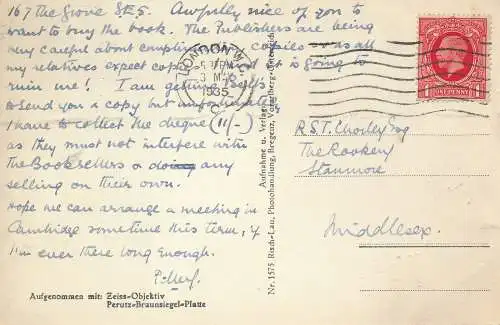 167 The Grove SE5. Awfully nice of you to
want to buy the book. The Publishers are being
very careful about complimentary copies as all
my relatives expect copies and it is going to
ruin me! I am getting
to send you a copy but unfortunately
I have to collect the cheque (11/-)
as they must not interfere with
the Booksellers or doing any
selling on their own.
Hope we can arrange a meeting in
Cambridge sometime this term, if
I'm ever there long enough.
LONDON
PM
3 MAY
1935
POSTAGE
ONE PENNY
R.S.T. Chorley Esq
The Rookery
Stanmore
Middlesex.
Aufnahme u. Verlag
Risch-Lau, Photohandlung, Bregenz, Vorarlberg
Nr. 1575
Aufgenommen mit: Zeiss-Objektiv
Perutz-Braunsiegel-Platte